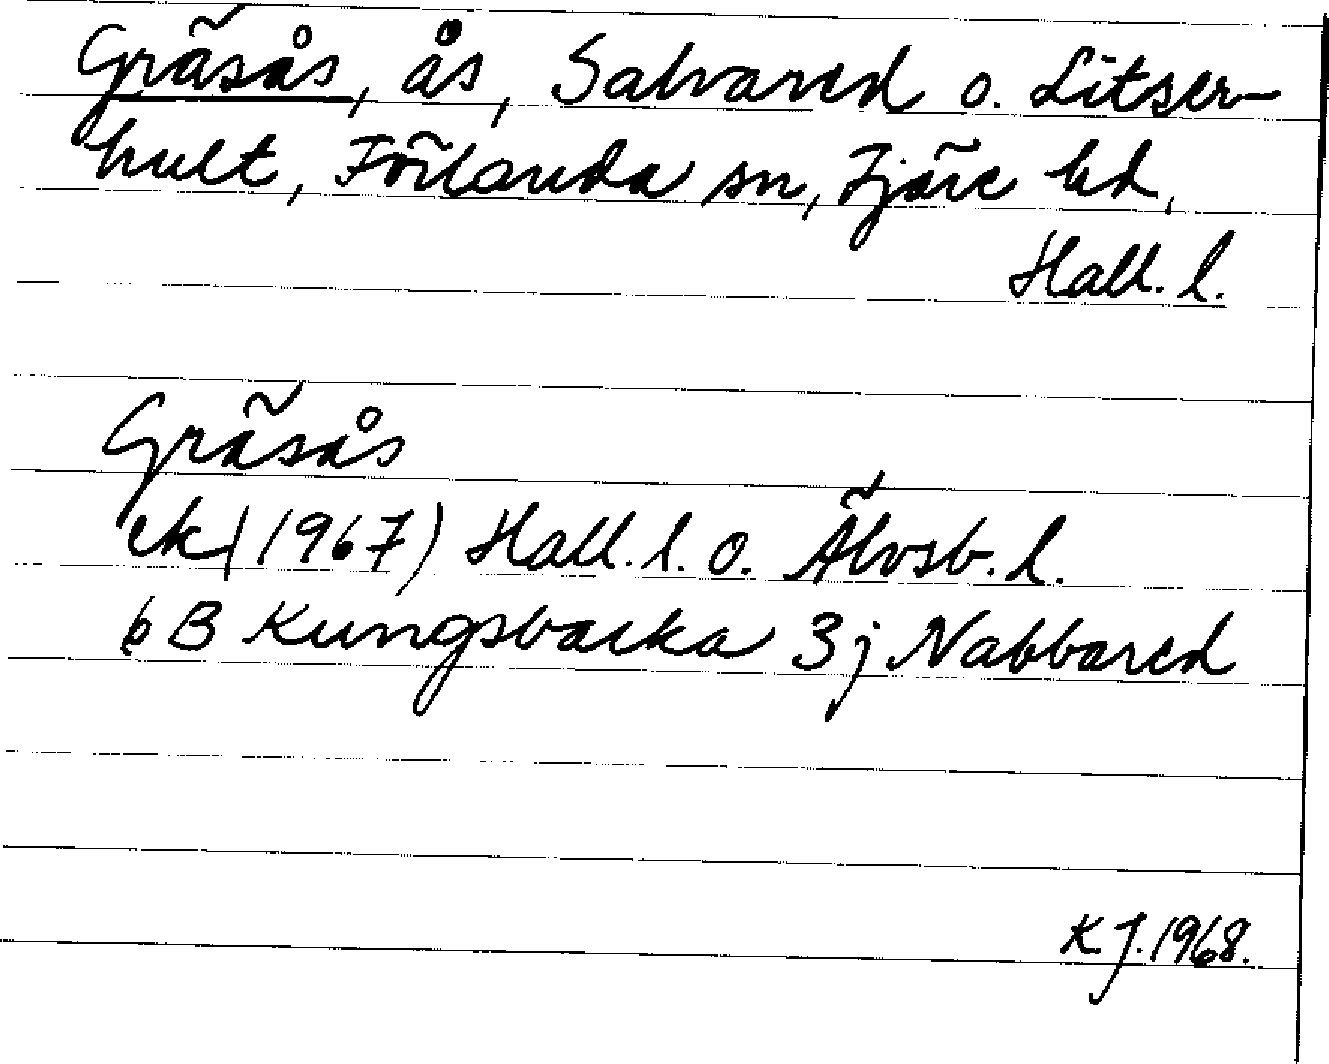 Gräsås, ås, Salvared o. Litser-
hult, Förlanda sn, Fjäre hd,
Hall. l.
Gräsås
ek (1967) Hall. l. o. Älvsb. l.
6 B Kungsbacka 3 j Nabbared
K J. 1968.